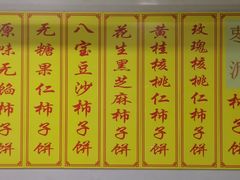 原味无馅柿子饼
无糖果仁柿子饼
八宝豆沙柿子饼
花生黑芝麻柿子饼
黄桂核桃仁柿子饼
玫瑰核桃仁柿子饼
枣泥柿子饼